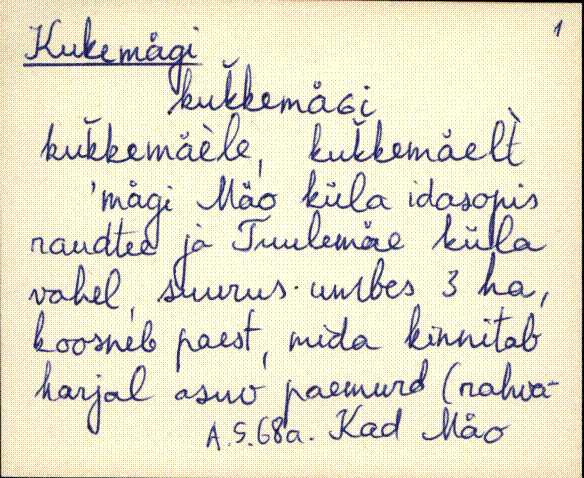 1
Kukemägi
kuk̆kemäɢi
kuk̆kemäèle, kuk̆kemäelt̀
'mägi Mäo küla idasopis
raudtee ja Tuulemäe küla
vahel, suurus umbes 3 ha,
koosneb paest, mida kinnitab
harjal asuv paemurd (rahva-
A.S.68a. Kad Mäo